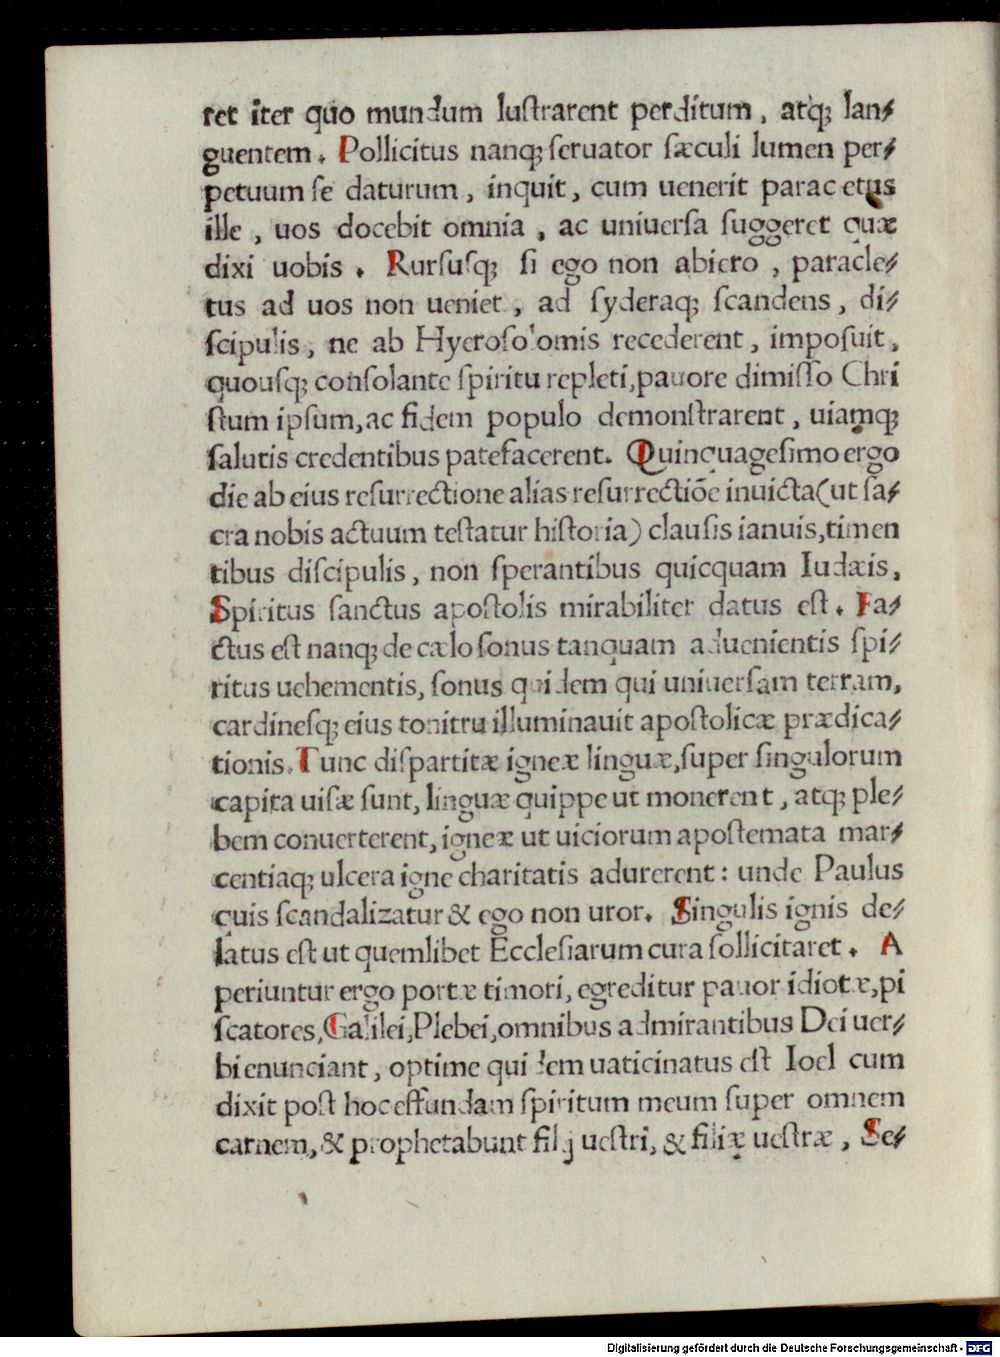 ret iter quo mundum lustrarent perditum, atq; lan⸗
guentem. Pollicitus nanq; seruator sæculi lumen per⸗
petuum se daturum, inquit, cum uenerit paracetus
ille, uos docebit omnia, ac uniuersa suggeret quæ
dixi uobis. Rursusq; si ego non abiero, paracle⸗
tus ad uos non ueniet, ad syderaq; scandens, di⸗
scipulis, ne ab Hyerosolomis recederent, imposuit,
quousq; consolante spiritu repleti, pauore dimisso Chri
stum ipsum, ac fidem populo demonstrarent, uiamq;
salutis credentibus patefacerent. Quinquagesimo ergo
die ab eius resurrectione alias resurrectiõe inuicta (ut sa⸗
cra nobis actuum testatur historia) clausis ianuis, timen
tibus discipulis, non sperantibus quicquam Iudæis,
Spiritus sanctus apostolis mirabiliter datus est. Fa⸗
ctus est nanq; de cælo sonus tanquam aduenientis spi⸗
ritus uehementis, sonus quidem qui uniuersam terram,
cardinesq; eius tonitru illuminauit apostolicæ prædica⸗
tionis. Tunc dispartitæ igneæ linguæ, super singulorum
capita uisæ sunt, linguæ quippe ut monerent, atq; ple⸗
bem conuerterent, igneæ ut uiciorum apostemata mar⸗
centiaq; ulcera igne charitatis adurerent: unde Paulus
quis scandalizatur & ego non uror. Singulis ignis de⸗
latus est ut quemlibet Ecclesiarum cura sollicitaret. A
periuntur ergo portæ timori, egreditur pauor idiotæ, pi
scatores, Galilei, Plebei, omnibus admirantibus Dei uer⸗
bi enunciant, optime quidem uaticinatus est Ioel cum
dixit post hoc effundam spiritum meum super omnem
carnem, & prophetabunt filij uestri, & filiæ uestræ, Se⸗
Digitalisierung gefördert durch die Deutsche Forschungsgemeinschaft - DFG